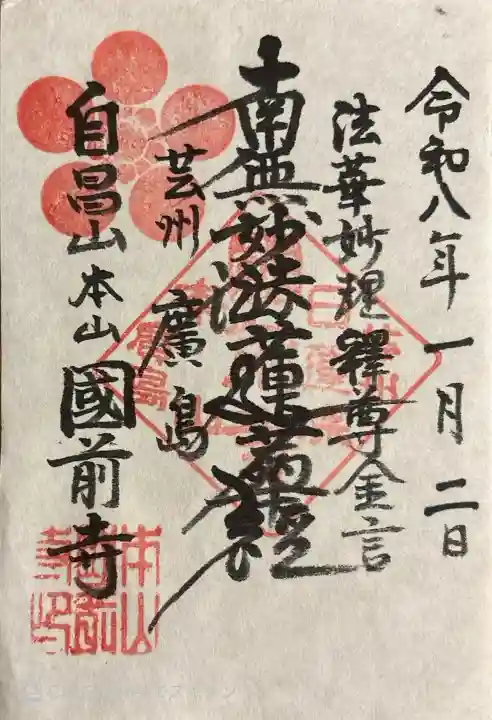 令和八年一月二日
法華妙理釋尊金言
南無妙法蓮華經
芸州廣島
自昌山本山國前寺
本山
國前
寺印